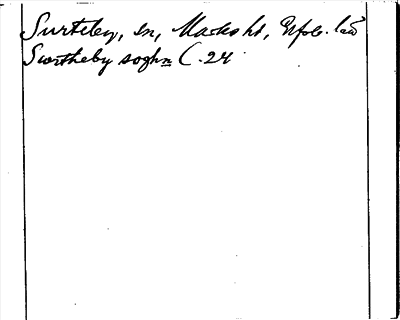 Surteby, sn, Marks hd, Älvsb. län
Swrtheby soghn C. 24